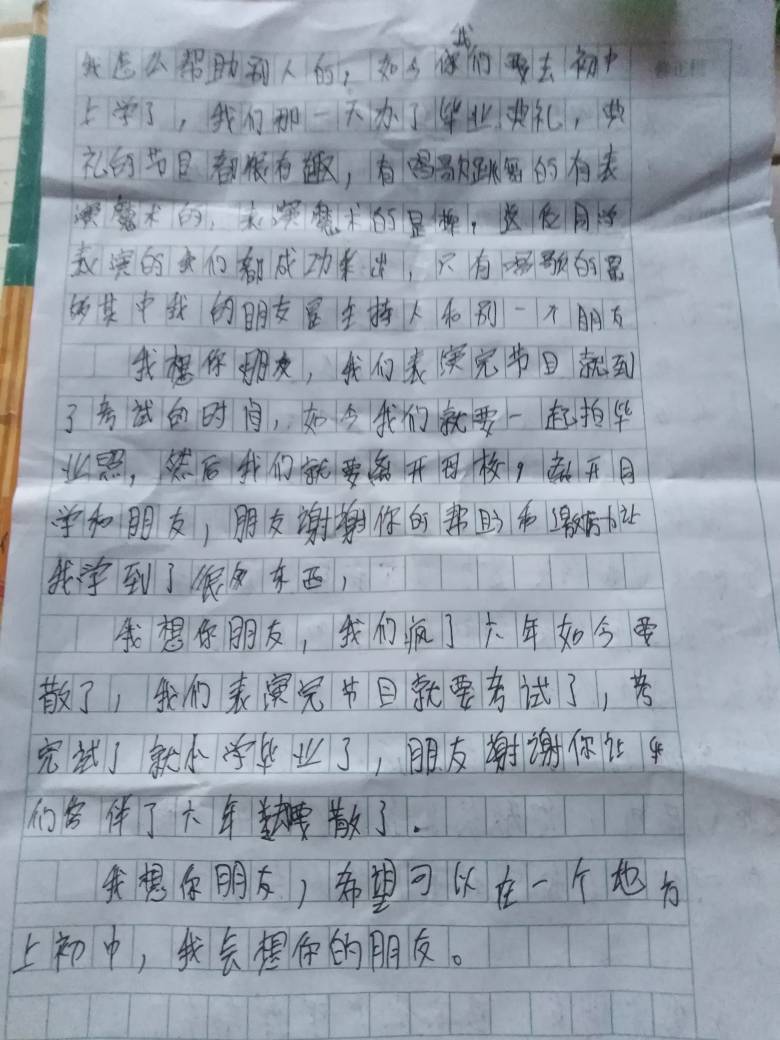 我怎么帮助别人的，如今你我们要去初中
上学了，我们那一天办了毕业典礼，典
礼的节目都很有趣，有唱歌跳舞的有表
演魔术的，表演魔术的是，这位同学
表演的我们都成功出，只有唱歌的是
其中我的朋友是主持人和别一个朋友
我想你朋友，我们表演完节目就到
了考试的时间，如今我们就要一起拍毕
业照，然后我们就要离开母校，离开同
学和朋友，朋友谢谢你的帮助和让
我学到了很多东西，
我想你朋友，我们疯了六年如今要
散了，我们表演完节目就要考试了，考
完试了就小学毕业了，朋友谢谢你让
们伴了六年要散了.
我想你朋友，希望可以在一个地方
上初中，我会想你的朋友。